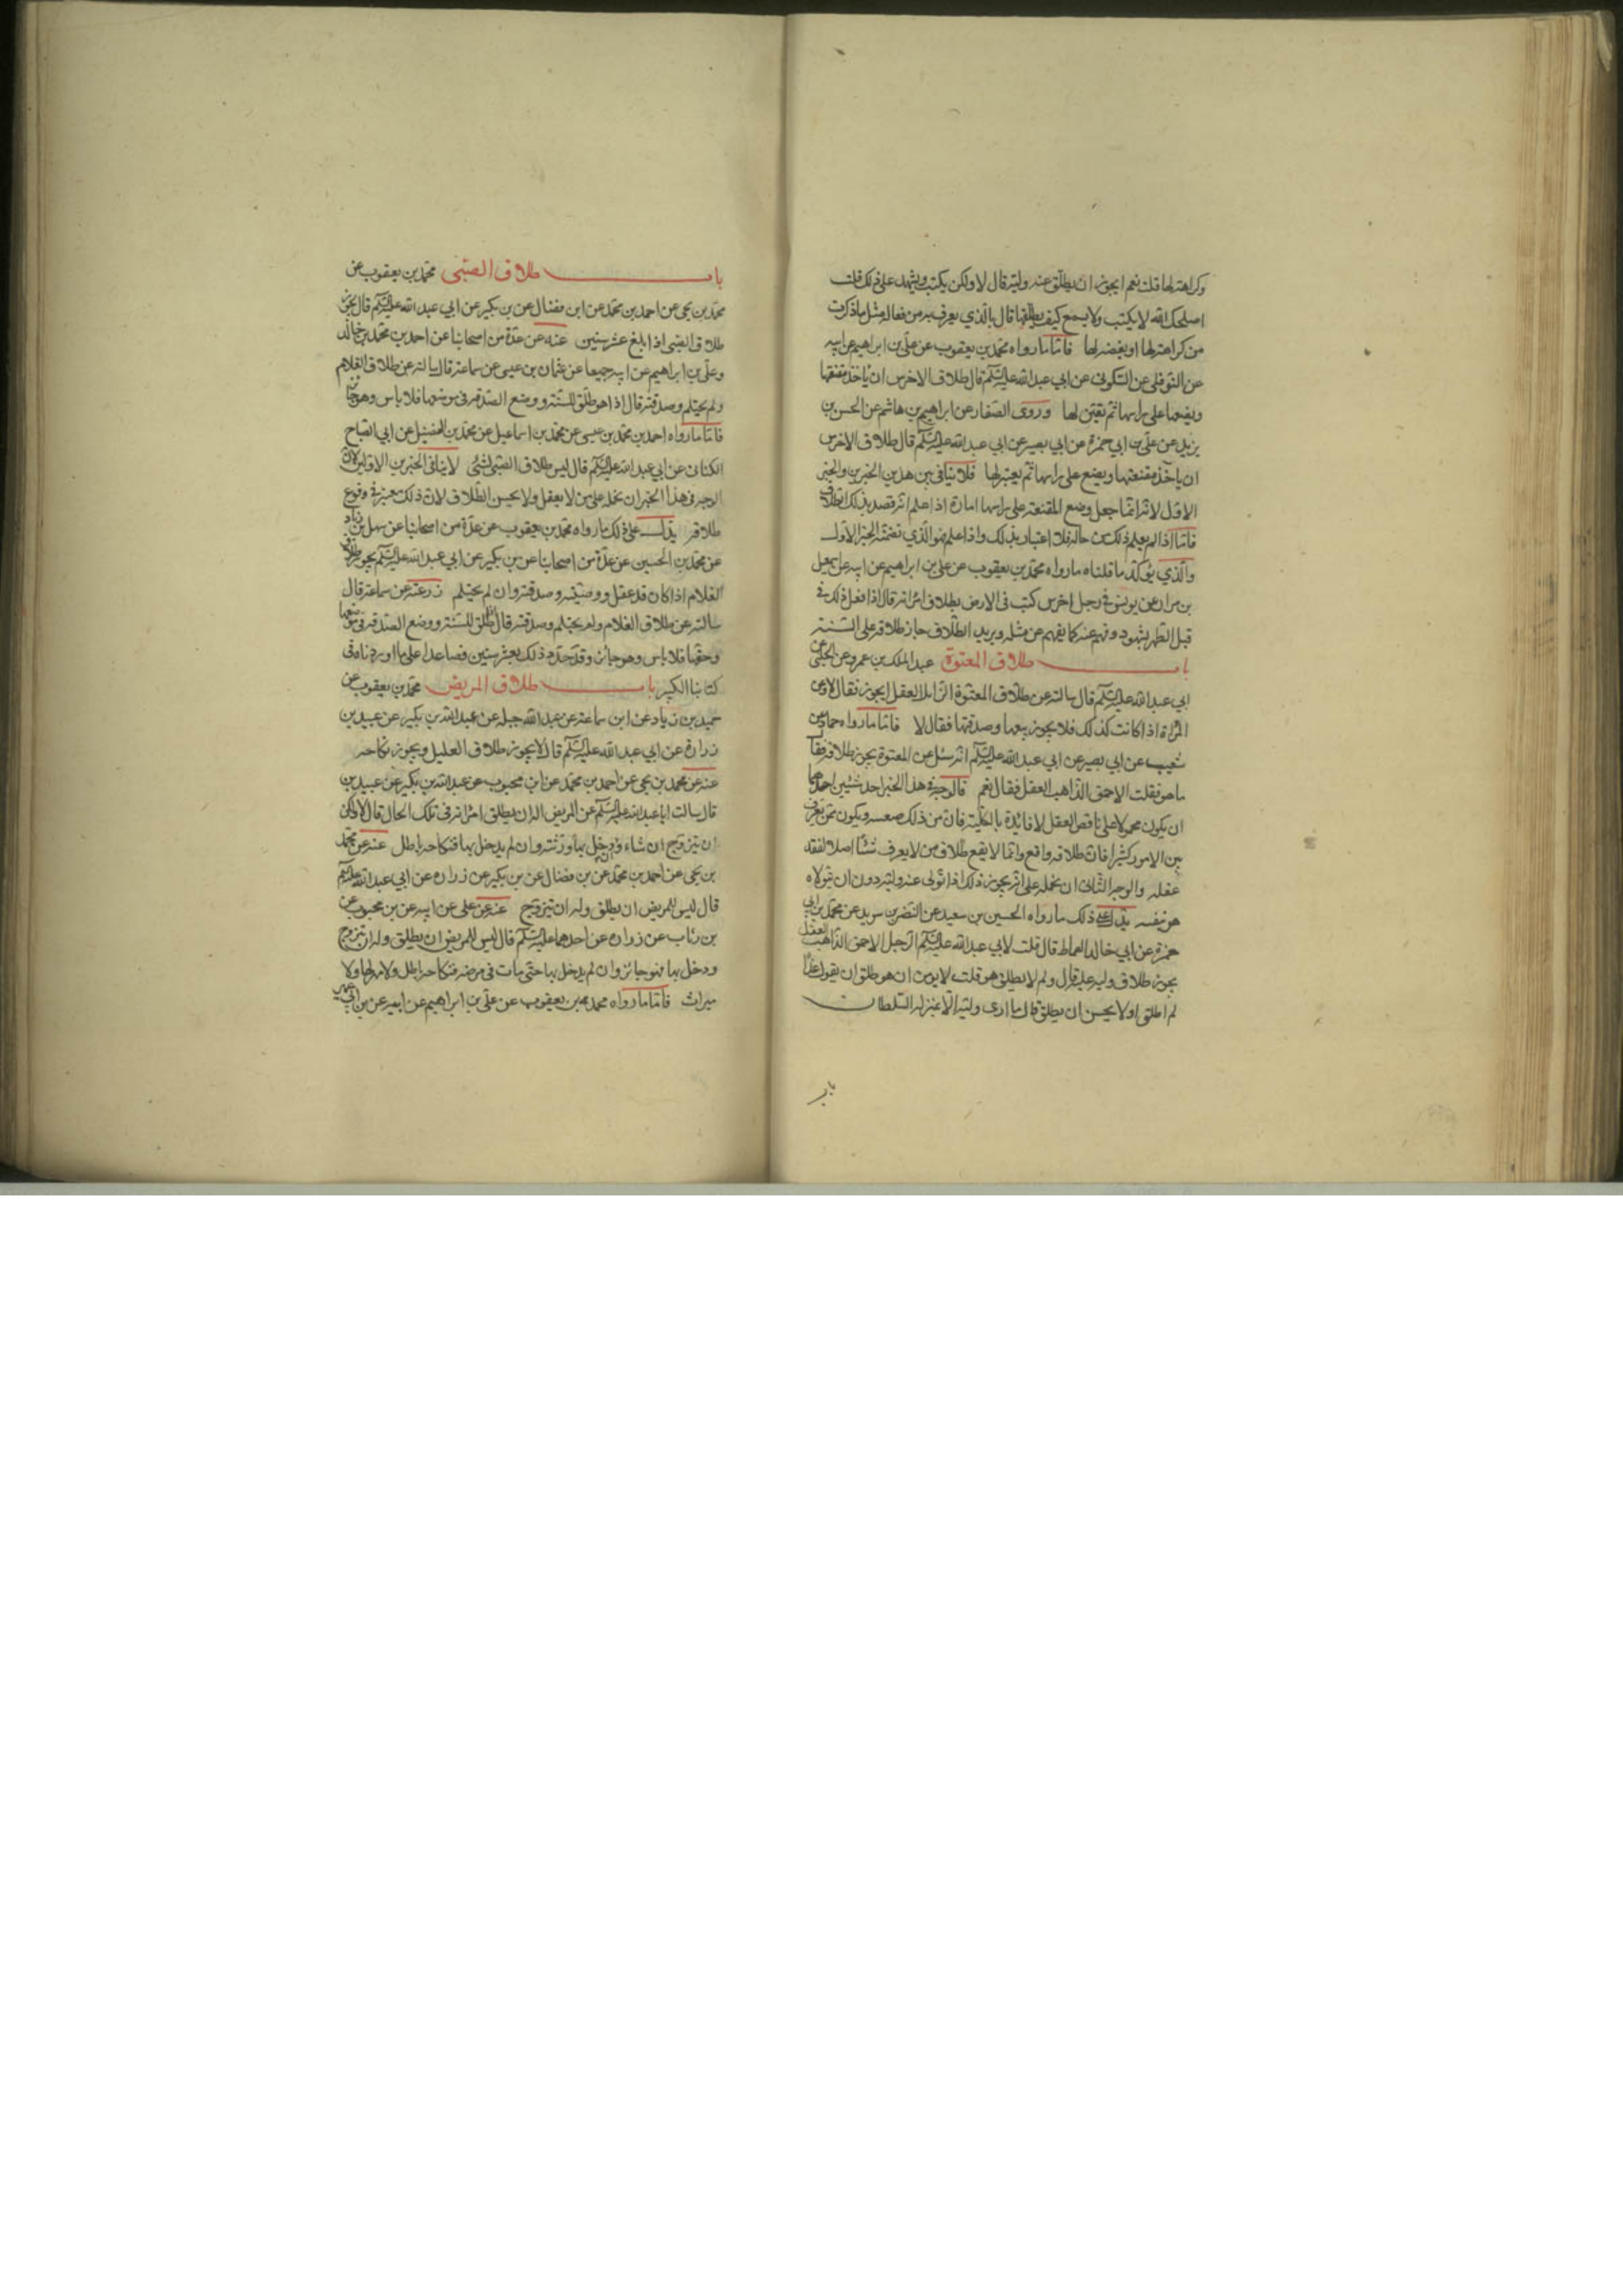 وكراهته لها قلت نعم ايجوز ان يطلق عنه وليه قال لا ولكن يكتب ويشهد على ذلك قلت
اصلحك الله لا يكتب ولا يسمع كيف يطلقها قال بالذي يعرف به من فعاله مثل ما ذكرت
من كراهته لها او بغضه لها فاما ما رواه محمد بن يعقوب عن علي بن ابراهيم عن ابيه
عن النوفلي عن السكوني عن ابي عبد الله عليه السلام قال طلاق الاخرس ان ياخذ مقنعتها
ويضعها على راسها ثم يعتزلها وروى الصفار عن ابراهيم بن هاشم عن الحسن بن
يزيد عن علي بن ابي حمزة عن ابي بصير عن ابي عبد الله عليه السلام قال طلاق الاخرس
ان ياخذ مقنعتها ويضع على راسها ثم يعتزلها فلا ينافي بين هذين الخبرين والخبر
الاول لانه انما جعل وضع المقنعة على راسها امارة اذا علم انه قصد بذلك الطلاق
فاما اذا لم يعلم ذلك من حاله فلا اعتبار بذلك واذا علم فهو الذي تضمنه الخبر الاول
والذي يؤكد ما قلناه ما رواه محمد بن يعقوب عن علي بن ابراهيم عن ابيه عن اسمعيل
بن مرار عن يونس في رجل اخرس كتب في الارض بطلاق امراته قال اذا فعل ذلك في
قبل الطهر بشهود وفهم عنه كما يفهم عن مثله ويريد الطلاق جاز طلاقه على السنة
باب طلاق المعتوة عبد الملك بن عمرو عن الحلبي عن
ابي عبد الله عليه السلام قال سالته عن طلاق المعتوة الزايل العقل ايجوز فقال لا وعن
المراة اذا كانت كذلك فلا يجوز بيعها وصدقتها فقال لا فاما ما رواه حماد بن
شعيب عن ابي بصير عن ابي عبد الله عليه السلام انه سئل عن المعتوة يجوز طلاقه فقال
ما هو فقلت الاحمق الذاهب العقل فقال نعم فالوجه في هذا الخبر احد شيئين احدهما
ان يكون محمولا على ناقص العقل لا فايدة بالكلية فان من ذلك ويكون ممن يفرق
بين الامور كثيرا فان طلاقه واقع وانما لا يقع طلاق من لا يعرف شيئا اصلا لفقد
عقله والوجه الثاني ان نحمله على انه يجوز ذلك اذا تولى عنه وليه دون ان يتولاه
هو نفسه يدل على ذلك ما رواه الحسين بن سعيد عن النضر بن سويد عن محمد بن ابي
حمزة عن ابي خالد القماط قال قلت لابي عبد الله عليه السلام الرجل الاحمق الذاهب العقل
يجوز طلاق وليه عليه قال ولم لا يطلق هو قلت لا يومن ان هو طلق ان يقول غدا
لم اطلق او لا يحسن ان يطلق قال ما ارى وليه الا بمنزلة السلطان
باب
باب طلاق الصبى محمد بن يعقوب عن
محمد بن يحيى عن احمد بن محمد عن ابن فضال عن بن بكير عن ابي عبد الله عليه السلام قال يجوز
طلاق الصبى اذا بلغ عشر سنين عنه عن عدة من اصحابنا عن احمد بن محمد بن خالد
وعلي بن ابراهيم عن ابيه جميعا عن عثمان بن عيسى عن سماعة قال سالته عن طلاق الغلام
ولم يحتلم وصدقته قال اذا هو طلق للسنة ووضع الصدقة في موضعها فلا باس وهو جائز
فاما ما رواه احمد بن محمد بن عيسى عن محمد بن اسماعيل عن محمد بن الفضيل عن ابي الصباح
الكنانى عن ابي عبد الله عليه السلام قال ليس طلاق الصبى بشئ لا ينافي الخبرين الاولين لان
الوجه في هذا الخبر ان نحمله على من لا يعقل ولا يحسن الطلاق لان ذلك معتبر في وقوع
طلاقه يدل على ذلك ما رواه محمد بن يعقوب عن عدة من اصحابنا عن سهل بن زياد
عن محمد بن الحسين عن عدة من اصحابنا عن بن بكير عن ابي عبد الله عليه السلام يجوز طلاق
الغلام اذا كان قد عقل ووصيته وصدقته وان لم يحتلم زرعة عن سماعة قال
سالته عن طلاق الغلام ولم يحتلم وصدقته قال اذا طلق للسنة ووضع الصدقة في موضعها
وحقها فلا باس وهو جائز وقد حدد ذلك بعشر سنين فصاعدا على ما اوردناه في
كتابنا الكبير باب طلاق المريض محمد بن يعقوب عن
حميد بن زياد عن ابن سماعة عن عبد الله جبلة عن عبد الله بن بكير عن عبيد بن
زرارة عن ابي عبد الله عليه السلام قال لا يجوز طلاق العليل ويجوز نكاحه
عنه عن محمد بن يحيى عن احمد بن محمد عن ابن محبوب عن عبد الله بن بكير عن عبيد بن
قال سالت ابا عبد الله عليه السلام عن المريض اله ان يطلق امراته في تلك الحال قال لا ولكن
ان يتزوج ان شاء فان دخل بها ورثته وان لم يدخل بها فنكاحه باطل عنه عن محمد
بن يحيى عن احمد بن محمد عن بن فضال عن بن بكير عن زرارة عن ابي عبد الله عليه السلام
قال ليس للمريض ان يطلق وله ان يتزوج عنه عن علي عن ابيه عن بن محبوب عن
بن رئاب عن زرارة عن احدهما عليه السلام قال ليس للمريض ان يطلق وله ان يتزوج
ودخل بها فهو جائز وان لم يدخل بها حتى مات في مرضه فنكاحه باطل ولا مهر لها ولا
ميراث فاما ما رواه محمد بن يعقوب عن علي بن ابراهيم عن ابيه عن بن ابي عمير